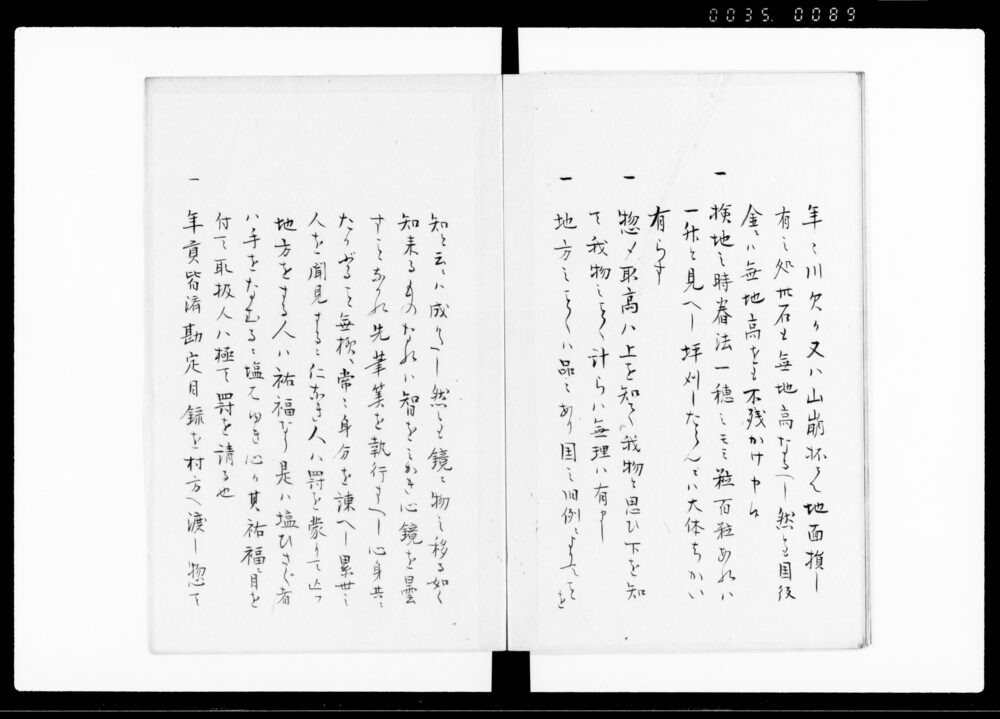 0035. 0089
年ニ川欠り又ハ山崩抔にて地面損し
有之処廿石も無地高なるへし然とも国役
金ニハ無地高をも不残かけ申候
一 検地之時春法一穂ニモミ粒百粒あれハ
一升と見へし坪刈したらんニハ大体ちかい
有らす
一 惣〆取高ハ上を知らく我物と思ひ下を知
て我物之ことく計らハ無理ハ有まし
一 地方之ことくハ品々あり国之旧例によてことを
知と云ハ成りかたし然とも鏡ニ物之移る如く
知来るものなれハ智をみかき心鏡を曇
すことなかれ先筆算を執行すへし心身共ニ
たりがること無様ニ常ニ身分を諫へし累世ニ
人を聞見するに仁なき人ハ罸を蒙りて
地方をする人ハ祐福なり是ハ塩ひさく者
ハ手をなむるニ塩はゆき心か其祐福ニ目を
付て取扱人ハ極て罸を請る也
一 年貢皆済勘定目録を村方へ渡し惣て